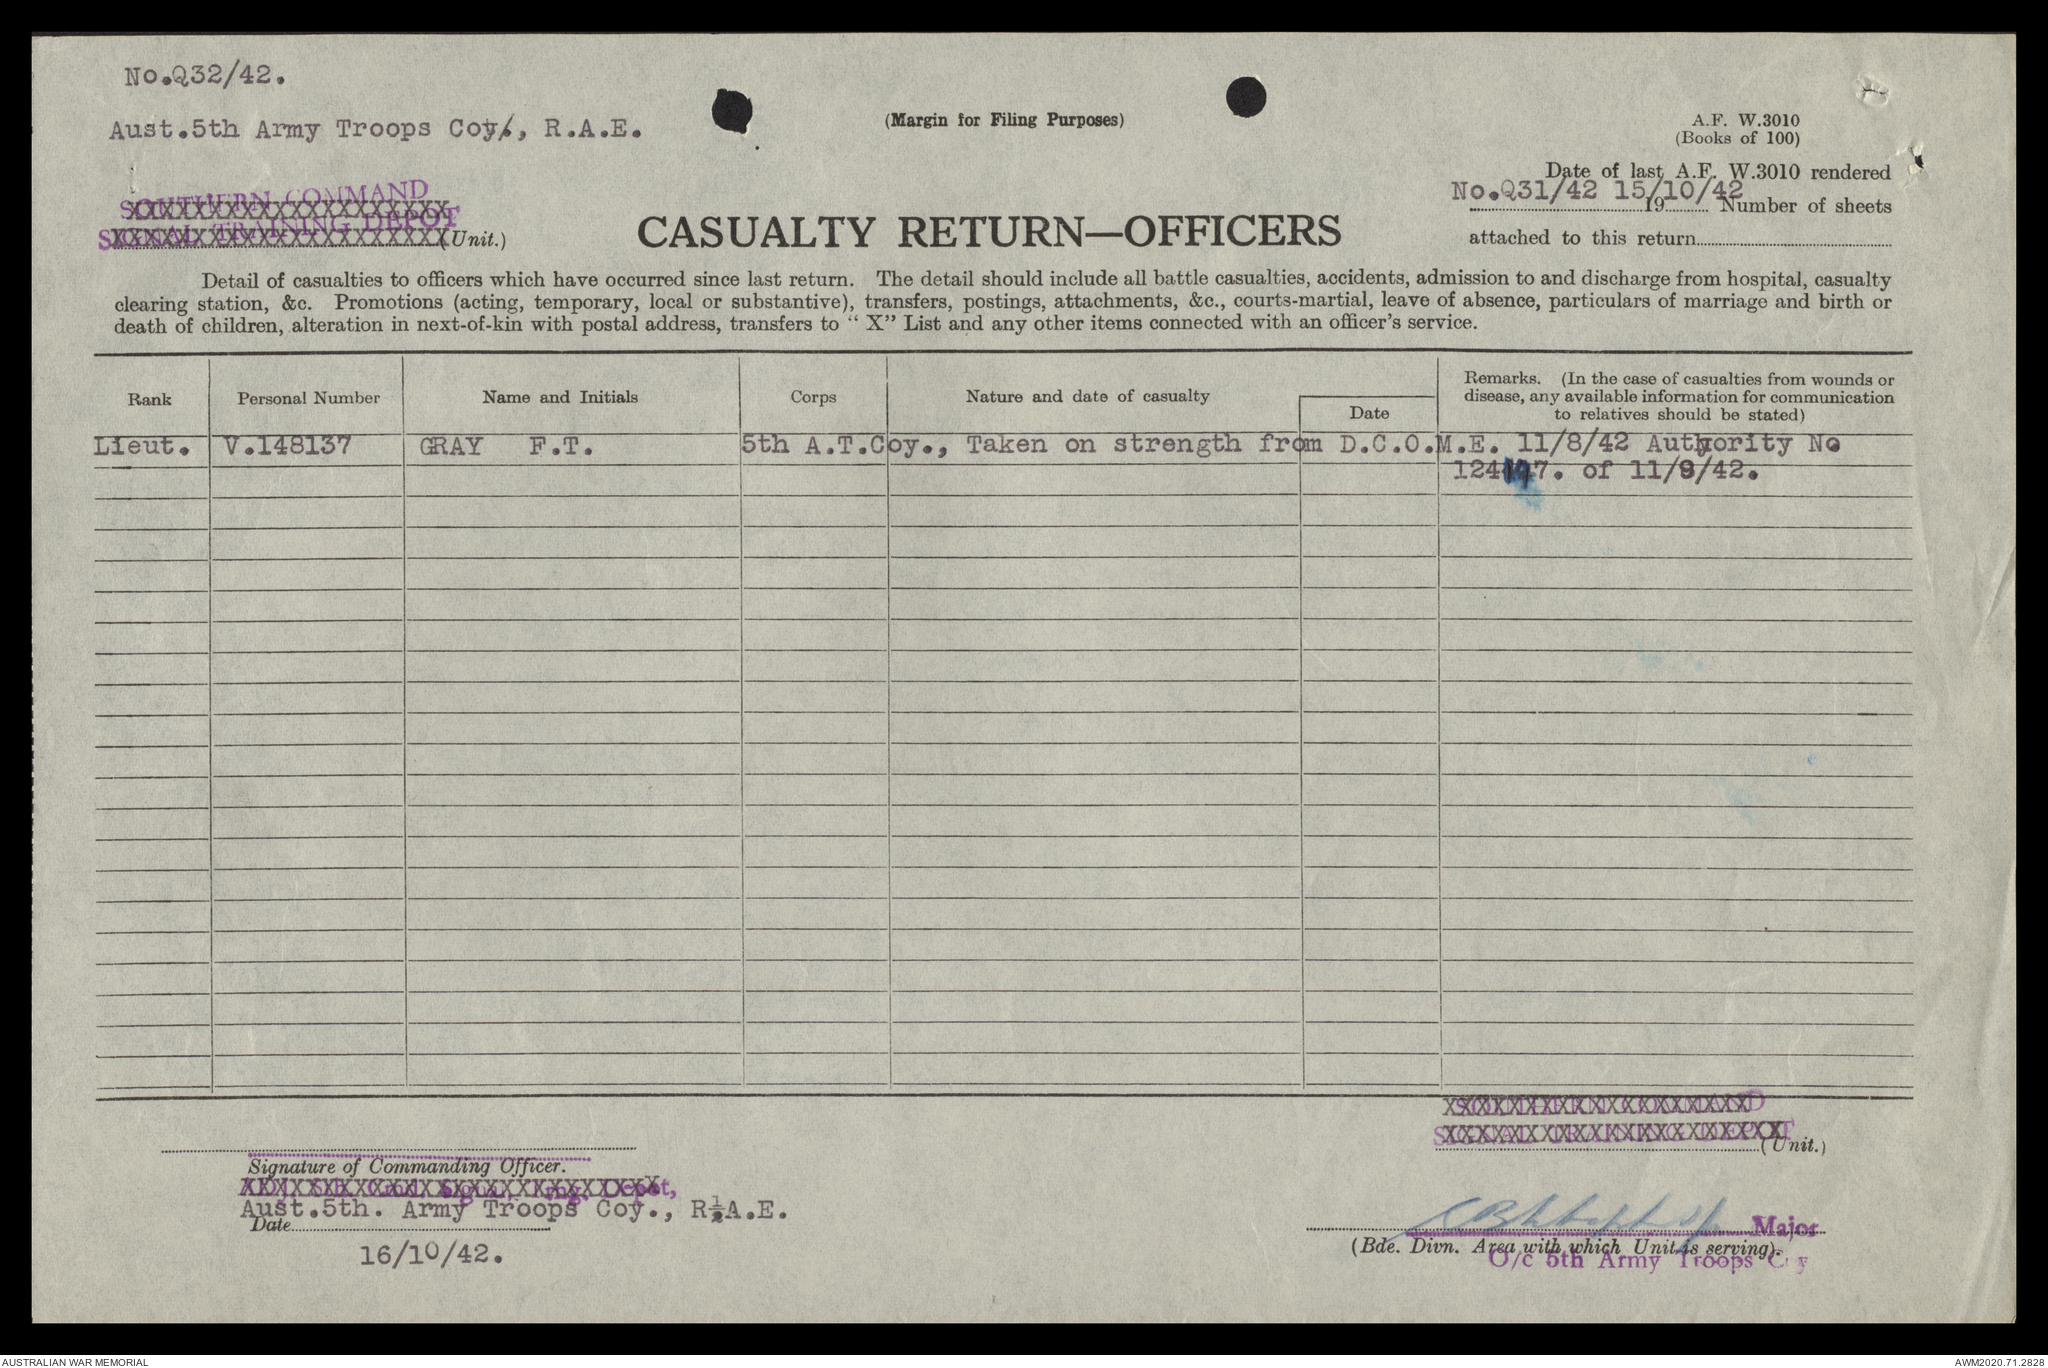 No.Q32/42.
Aust.5th Army Troops Coy., R.A.E.
(Margin for Filing Purposes)
A.F. W.3010
(Books of 100)
Date of last A.F. W.3010 rendered
No.Q31/42 15/10/42
19 Number of sheets
attached to this return
SOUTHERN COMMAND
XXXXXXXXXXXXXXXXXXXX
SIGNAL TRAINING DEPOT
XXXXXXXXXXXXXXXXXXXXX (Unit.)
CASUALTY RETURN—OFFICERS
Detail of casualties to officers which have occurred since last return. The detail should include all battle casualties, accidents, admission to and discharge from hospital, casualty
clearing station, &c. Promotions (acting, temporary, local or substantive), transfers, postings, attachments, &c., courts-martial, leave of absence, particulars of marriage and birth or
death of children, alteration in next-of-kin with postal address, transfers to " X" List and any other items connected with an officer's service.
Rank
Personal Number
Name and Initials
Corps
Nature and date of casualty
Date
Remarks. (In the case of casualties from wounds or
disease, any available information for communication
to relatives should be stated)
Lieut. V.148137 GRAY F.T. 5th A.T.Coy., Taken on strength from D.C.O.M.E. 11/8/42 Authority No
of 11/9/42.
SOUTHERN COMMAND
SIGNAL TRAINING DEPOT
(Unit.)
Signature of Commanding Officer.
Depot,
Aust.5th. Army Troops Coy., R.A.E.
Date
16/10/42.
Major
(Bde. Divn. Area with which Unit is serving).
O/c 5th Army Troops Coy
AUSTRALIAN WAR MEMORIAL
AWM2020.71.2828